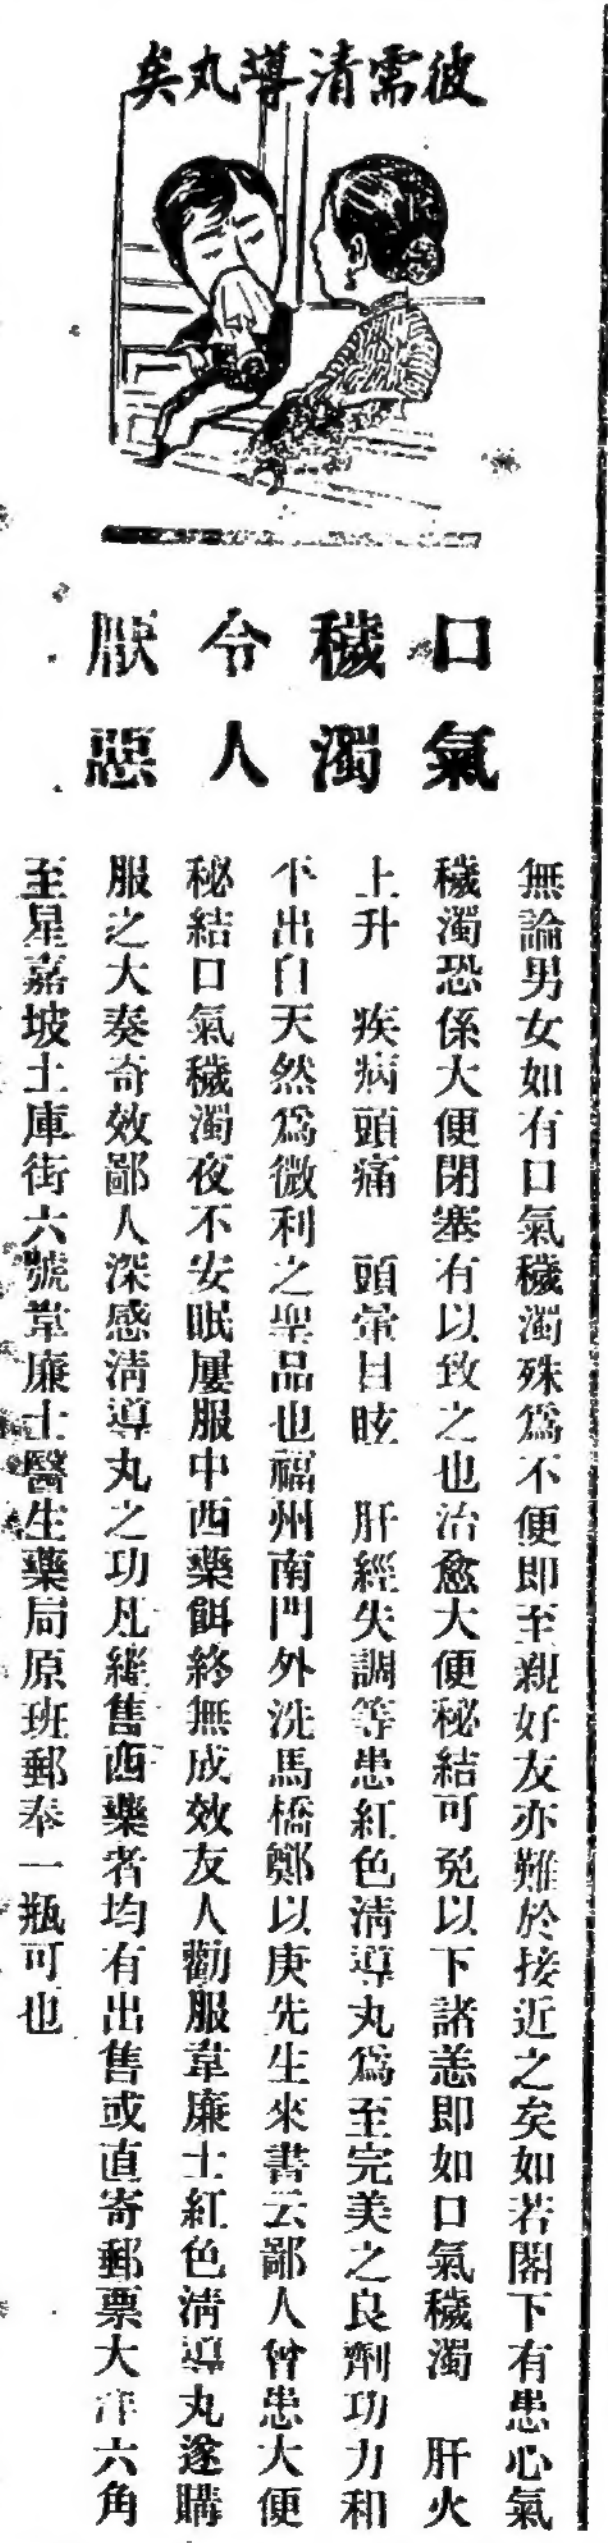 彼需清導丸矣
口氣
穢濁
令人
厭惡
無論男女如有口氣穢濁殊爲不便即至親好友亦難於接近之矣如若閣下有患心氣
穢濁恐係大便閉塞有以致之也治愈大便秘結可免以下諸恙即如口氣穢濁 肝火
上升 疾病頭痛 頭暈目眩 肝經失調等患紅色清導丸爲至完美之良劑功力和
不出自天然爲微利之聖品也福州南門外洗馬橋鄭以庚先生來書云鄙人曾患大便
秘結口氣穢濁夜不安眠屢服中西藥餌終無成效友人勸服韋廉士紅色清導丸遂購
服之大奏奇效鄙人深感清導丸之功凡經售西藥者均有出售或直寄郵票大洋六角
至星嘉坡土庫街六號韋廉士醫生藥局原班郵奉一瓶可也